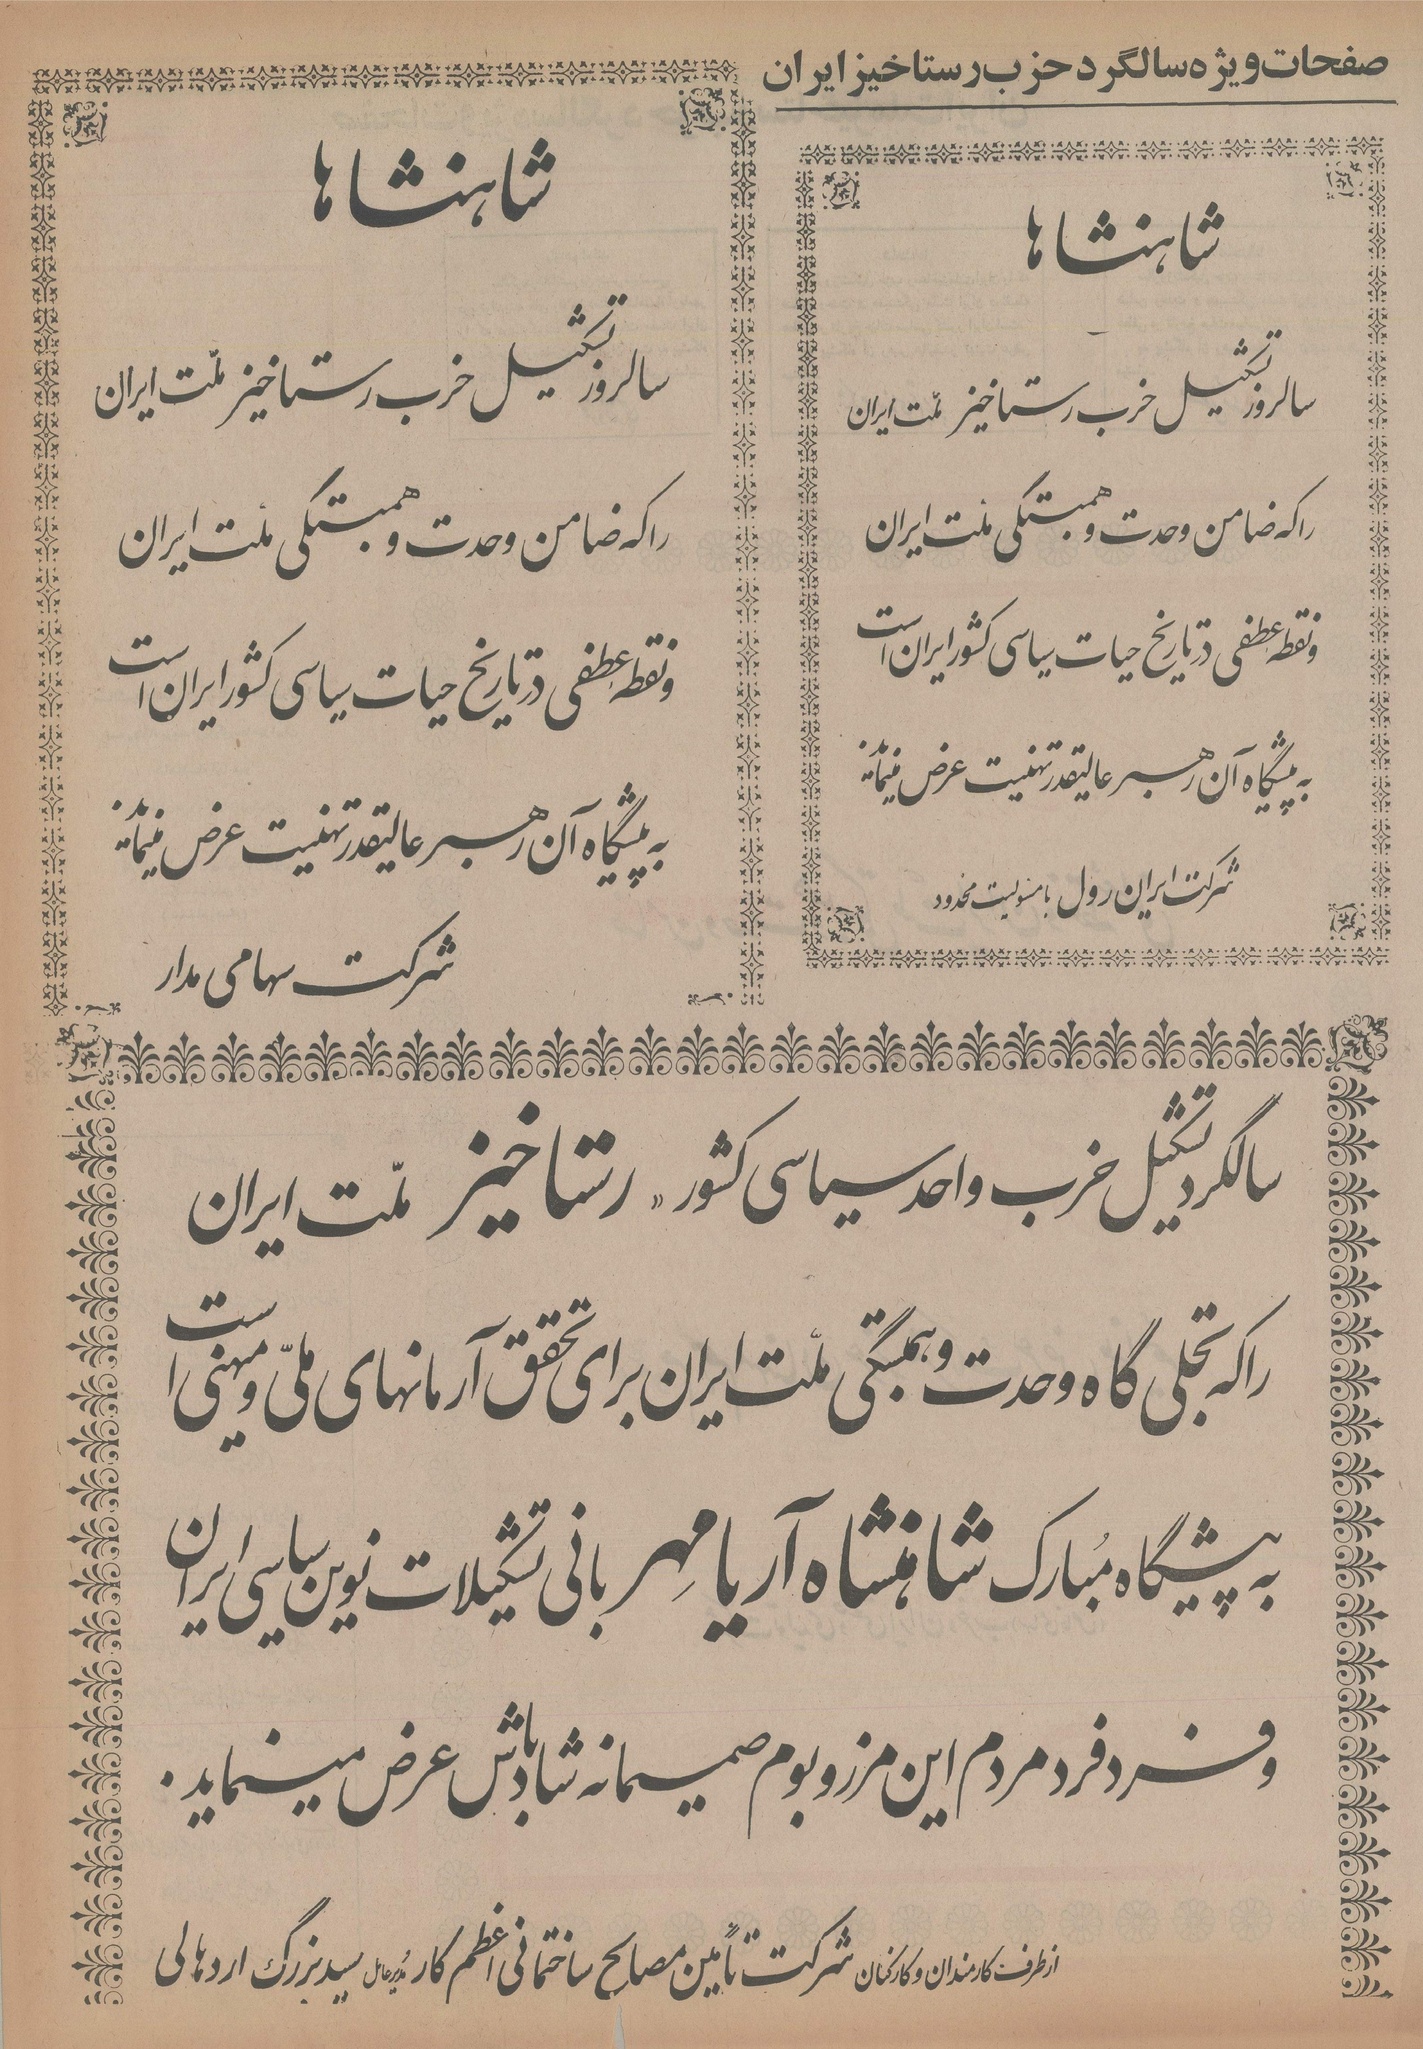 صفحات ویژه سالگرد حزب رستاخیز ایران
شاهنشاها
سالروز تشکیل حزب رستاخیز ملّت ایران
را که ضامن وحدت و همبستگی ملت ایران
و نقطه عطفی در تاریخ حیات سیاسی کشور ایران است
به پیشگاه آن رهبر عالیقدر تهنیت عرض مینماید
شرکت ایران رول با مسئولیت محدود
شاهنشاها
سالروز تشکیل حزب رستاخیز ملّت ایران
را که ضامن وحدت و همبستگی ملت ایران
و نقطه عطفی در تاریخ حیات سیاسی کشور ایران است
به پیشگاه آن رهبر عالیقدر تهنیت عرض مینماید
شرکت سهامی مدار
سالگرد تشکیل حزب واحد سیاسی کشور «رستاخیز ملّت ایران
را که تجلی گاه وحدت و همبستگی ملّت ایران برای تحقق آرمانهای ملّی و میهنی است
به پیشگاه مُبارک شاهنشاه آریامهر بانی تشکیلات نوین سیاسی ایران
و فرد فرد مردم این مرز و بوم صمیمانه شادباش عرض مینماید.
از طرف کارمندان و کارکنان شرکت تأمین مصالح ساختمانی اعظم کار مدیر عامل سید بزرگ اردهالی